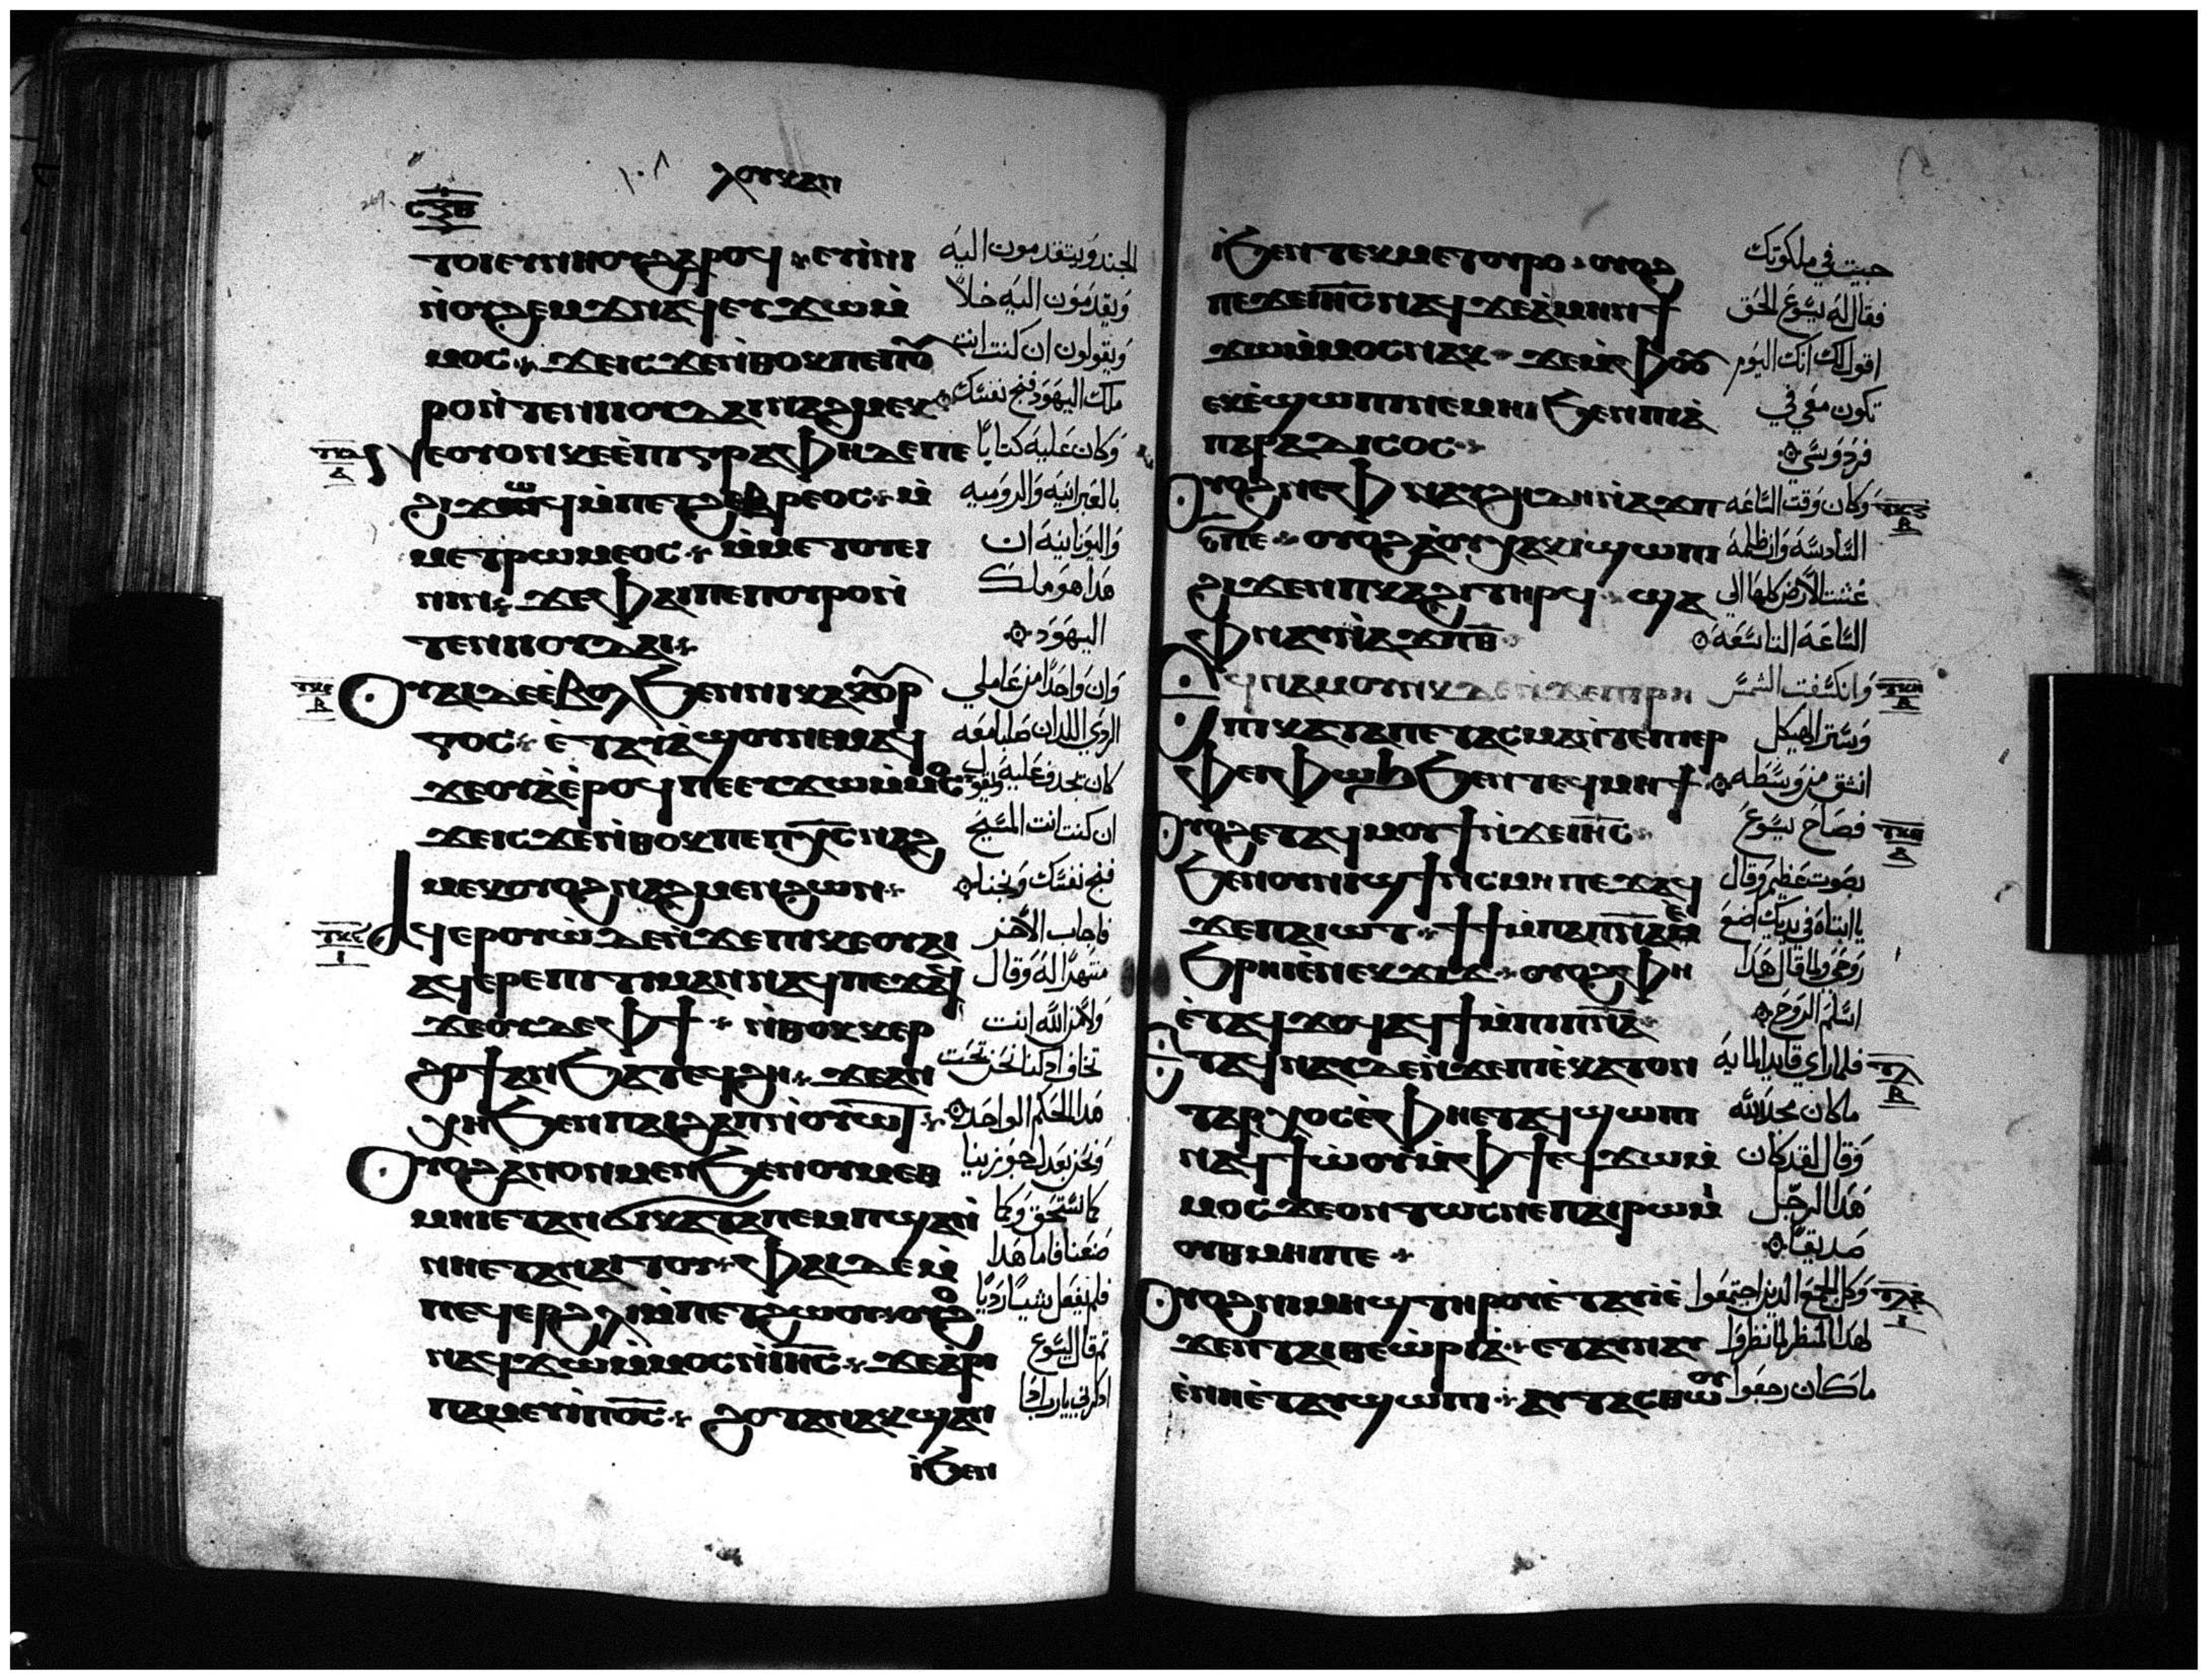 ⲗⲟⲩⲕⲁⲛ
١٠٨
ⲥⲝⲃ
ⲧⲟⲓⲉⲩⲛⲏⲟⲩϩⲁⲣⲟϥ ⲉⲩⲓⲛⲓ
ⲛ̀ⲟⲩϩⲉⲙϫⲛⲁϥⲉⲩϫⲱⲙ̀
ⲙⲟⲥ ϫⲉⲓⲥϫⲉⲛ̀ⲑⲟⲕⲡⲉⲡⲟⲩ
ⲣⲟⲛ̀ⲧⲉⲛⲓⲟⲩⲇⲁⲓⲛⲁϩⲙⲉⲕ
ⲛⲉⲟⲩⲟⲛⲕⲉⲉ̀ⲡⲓⲅⲣⲁⲫⲏⲇⲉⲡⲉ
ϩⲓϫⲱϥⲙ̀ⲙⲉⲧϩⲉⲃⲣⲉⲟⲥ ⲙ̀
ⲙⲉⲧⲣⲱⲙⲉⲟⲥ ⲙ̀ⲙⲉⲧⲟⲩⲉⲓ
ⲛⲓⲛ ϫⲉⲫⲁⲓⲡⲉⲡⲟⲩⲣⲟⲛ̀
ⲧⲉⲛⲓⲟⲩⲇⲁⲓ
ⲟⲩⲁⲓⲇⲉⲉ̀ⲃⲟⲗϧⲉⲛⲛⲓⲕⲁⲕⲟⲩⲣ
ⲅⲟⲥ ⲉ̀ⲧⲁⲩⲁ̀ϣⲟⲩⲛⲉⲙⲁϥ
ϫⲉⲟⲩⲁ̀ⲉ̀ⲣⲟϥⲡⲉⲉϥϫⲱⲙ̀ⲙⲟⲥ
ϫⲉⲓⲥϫⲉⲛ̀ⲑⲟⲕⲡⲉⲡⲭⲥⲛⲁϩ
ⲙⲉⲕⲟⲩⲟϩⲛⲁϩⲙⲉⲛϩⲱⲛ
ⲁϥⲉⲣⲟⲩⲱ̀ⲇⲉⲛ̀ϫⲉⲡⲓⲕⲉⲟⲩⲁⲓ
ⲁϥⲉⲣⲉⲡⲓⲧⲓⲙⲁⲛⲛⲁϥⲡⲉϫⲁϥ
ϫⲉⲟⲩⲇⲉⲫϯ ⲛ̀ⲑⲟⲕⲕⲉⲣ
ϩⲟϯⲁⲛϧⲁⲧⲉϥϩⲏ ϫⲉⲁⲛ
ⲭⲏϧⲉⲛⲡⲁⲓϩⲁⲡⲛ̀ⲟⲩⲱⲧ
ⲟⲩⲟϩⲁ̀ⲛⲟⲛⲙⲉⲛϧⲉⲛⲟⲩⲙⲉⲑ
ⲙⲏⲓⲉⲧⲁⲛϭⲓⲕⲁⲧⲁⲡⲉⲙⲡϣⲁⲛ̀
ⲛⲏⲉⲧⲁⲛⲁⲓⲧⲟⲩ ⲫⲁⲓⲇⲉⲙ̀
ⲡⲉϥⲉⲣϩⲗⲓⲙ̀ⲡⲉⲧϩⲱⲟⲩ ⲟⲩⲟϩ
ⲛⲁϥϫⲱⲙ̀ⲙⲟⲥⲛ̀ⲓⲏⲥ ϫⲉⲁ̀ⲣⲓ
ⲡⲁⲙⲉⲩⲓ̀ⲡⲟ̅ⲥ̅ ϩⲟⲧⲁⲛⲁⲕϣⲁⲛ
ⲓ̀ϧⲉⲛ
الجند ويتقدمون اليه
ويقدمون اليه خلاً
ويقولون ان كنت انت
ملك اليهود فنج نفسك
وكان عليه كتاباً
بالعبرانيه والروميه
واليونانيه ان
هدا هو ملك
اليهود
وان واحداً من عاملي
الردي اللدان صلبا معه
كان يجدف عليه ويقول
ان كنت انت المسيح
فنج نفسك ونجنا
فاجاب الاخر
منتهراً له وقال
ولا من الله انت
تخاف اد كنا نحن تحت
هدا الحكم الواحد
ونحن بعدل جوزينا
كما نستحق وكما
صنعنا فاما هدا
فلم يفعل شيئاً ردياً
تم قال ليسوع
ادكرني يارب ادا
ⲓ̀ϧⲉⲛⲧⲉⲕⲙⲉⲧⲟⲩⲣⲟ ⲟⲩⲟϩ
ⲡⲉϫⲉⲓⲏⲥⲛⲁϥϫⲉⲁ̀ⲙⲏⲛϯ
ϫⲱⲙ̀ⲙⲟⲥⲛⲁⲕ ϫⲉⲙ̀ⲫⲟⲟⲩ
ⲉⲕⲉ̀ϣⲱⲡⲓⲛⲉⲙⲏⲓϧⲉⲛⲡⲓⲁ̀
ⲡⲁⲣⲁⲇⲓⲥⲟⲥ
ⲟⲩⲟϩⲛⲉⲫⲛⲁⲩϩⲏⲇⲏⲛ̀ⲁϫⲡ
ⲋ̅ⲡⲉ ⲟⲩⲟϩⲁ̀ⲟⲩⲭⲁⲕⲓϣⲱⲡⲓ
ϩⲓϫⲉⲛⲡⲕⲁϩⲓⲧⲏⲣϥ ϣⲁ
ⲫⲛⲁⲩⲛ̀ⲁϫⲡ̅ⲑ̅
ⲁϥⲛⲁⲙⲟⲩⲛⲕⲇⲉⲛ̀ϫⲉⲫⲣⲏ
ⲡⲓⲕⲁⲧⲁⲡⲉⲧⲁⲥⲙⲁⲛ̀ⲧⲉⲡⲓⲉⲣ
ⲫⲉⲓⲫⲱϧϧⲉⲛⲧⲉϥⲙⲏϯ
ⲟⲩⲟϩⲉⲧⲁϥⲙⲟⲩϯⲛ̀ϫⲉⲓⲏⲥ
ϧⲉⲛⲟⲩⲛⲓϣϯⲛ̀ⲥⲙⲏⲡⲉϫⲁϥ
ϫⲉⲡⲁⲓⲱⲧ ϯϯⲙ̀ⲡⲁⲡ̅ⲛ̅ⲁ̅ⲉ̀
ϧⲣⲏⲓⲉ̀ⲛⲉⲕϫⲓϫ ⲟⲩⲟϩⲫⲏ
ⲉ̀ⲧⲁϥϫⲟϥⲁϥϯⲙ̀ⲡⲓⲡ̅ⲛ̅ⲁ̅
ⲉⲧⲁϥⲛⲁⲩⲇⲉⲛ̀ϫⲉⲡⲓⲉ̀ⲕⲁⲧⲟⲛ
ⲧⲁⲣⲭⲟⲥⲉ̀ⲫⲏⲉⲧⲁϥϣⲱⲡⲓ
ⲛⲁϥϯⲱ̀ⲟⲩⲙ̀ⲫϯⲉϥϫⲱⲙ̀
ⲙⲟⲥϫⲉⲟⲛⲧⲱⲥⲛⲉⲡⲁⲓⲣⲱⲙⲓ
ⲟⲩⲑⲙⲏⲓⲡⲉ
ⲟⲩⲟϩⲛⲓⲙⲏϣⲧⲏⲣⲟⲩⲉ̀ⲧⲁⲩⲓ̀ⲉ̀
ϫⲉⲛⲧⲁⲓⲑⲉⲱ̀ⲣⲓⲁ̀ ⲉⲧⲁⲩⲛⲁⲩ
ⲉ̀ⲛⲏⲉ̀ⲧⲁⲩϣⲱⲡⲓ ⲁⲩⲧⲁⲥⲑⲱⲟⲩ
جيت في ملكوتك
فقال له يسوع الحق
اقول لك انك اليوم
تكون معي في
فردوسي
وكان وقت الساعه
السادسه وان ظلمه
غشت الارض كلها الي
الساعه التاسعه
وانكسفت الشمس
وستر الهيكل
انشق من وسطه
فصاح يسوع
بصوت عظيم وقال
يا ابتاه في يديك اضع
روحي ولما قال هدا
اسلم الروح
فلما راي قايد المايه
ما كان مجد الله
وقال لقد كان
هدا الرجل
صديقاً
وكل الجمع الدين اجتمعوا
لهدا المنظر لما نظروا
ما كان رجعوا